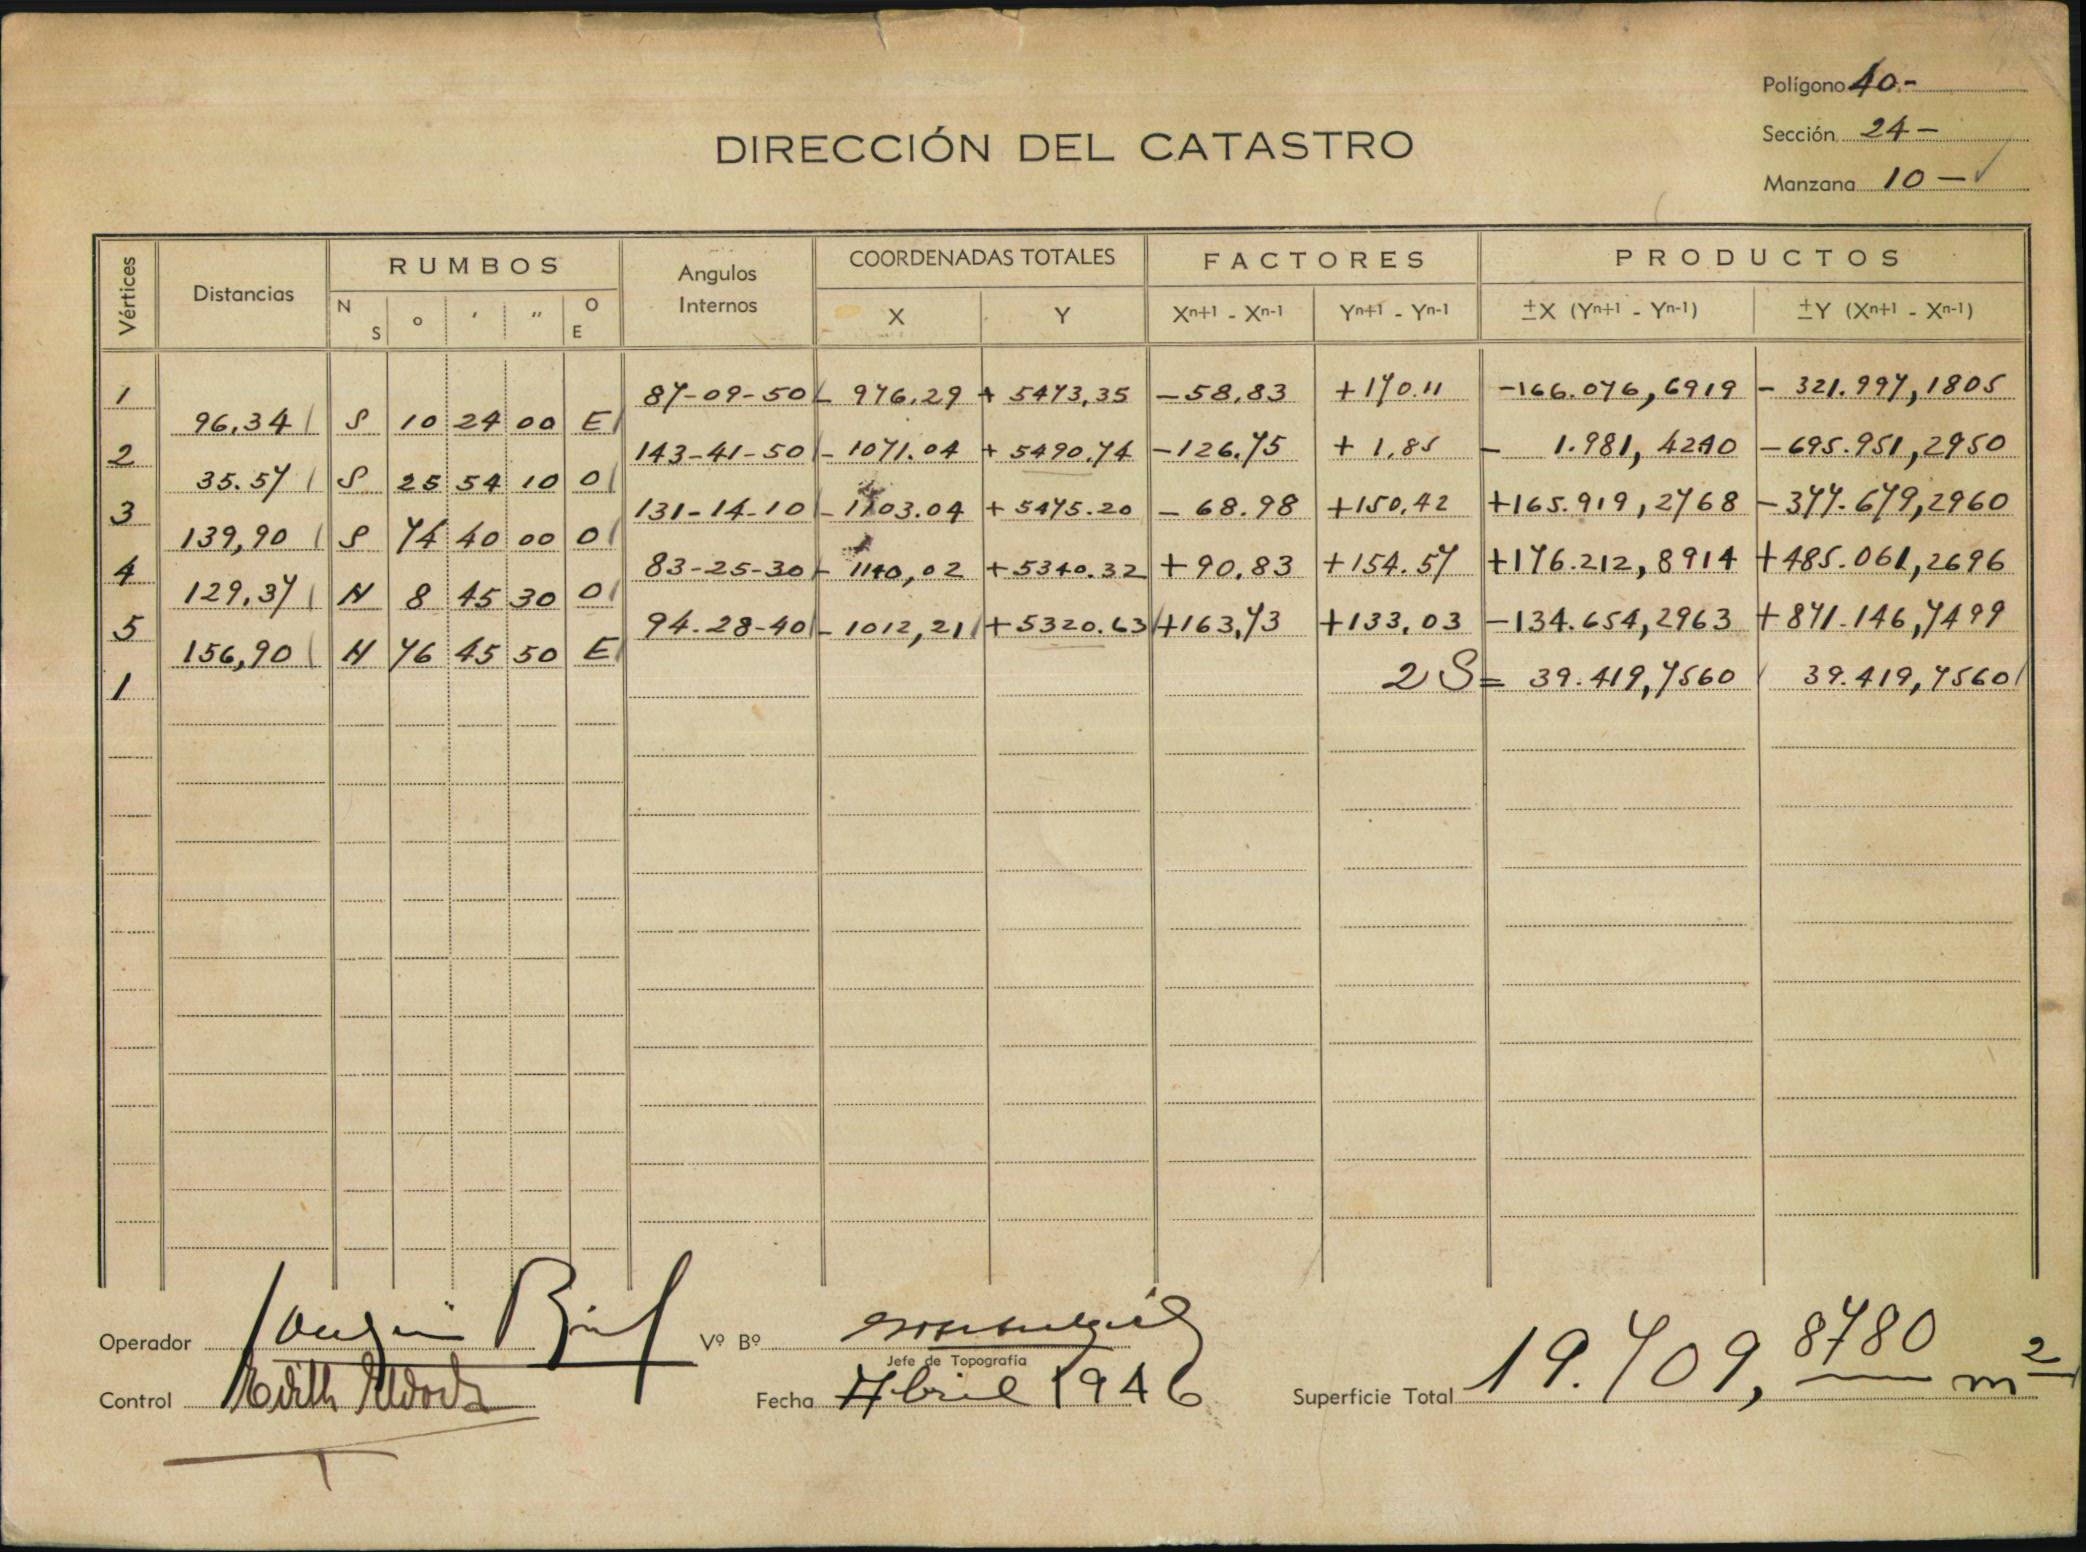 Polígono 40-
Sección 24-
Manzana 10-✓
DIRECCIÓN DEL CATASTRO
Vértices Distancias RUMBOS Angulos Internos COORDENADAS TOTALES FACTORES PRODUCTOS
N S ° ′ ″ O E X Y Xⁿ⁺¹ - Xⁿ⁻¹ Yⁿ⁺¹ - Yⁿ⁻¹ ±X (Yⁿ⁺¹ - Yⁿ⁻¹) ±Y (Xⁿ⁺¹ - Xⁿ⁻¹)
1 87-09-50 - 976.29 + 5473,35 -58.83 +170.11 -166.076,6919 - 321.997,1805
96,34 S 10 24 00 E
2 143-41-50 - 1071.04 + 5490.74 -126.75 + 1.85 - 1.981,4240 -695.951,2950
35.57 S 25 54 10 O
3 131-14-10 - 1103.04 + 5475.20 - 68.98 +150,42 +165.919,2768 -377.679,2960
139,90 S 74 40 00 O
4 83-25-30 - 1140,02 +5340.32 +90.83 +154.57 +176.212,8914 +485.061,2656
129,37 N 8 45 30 O
5 94.28-40 - 1012,21 +5320.63 +163,73 +133,03 -134.654,2963 +871.146,7499
156,90 N 76 45 50 E
1 2S= 39.419,7560 39.419,7560
Operador
Vº Bº
Jefe de Topografía
Control
Fecha Abril 1946
Superficie Total 19.709,8780 m²